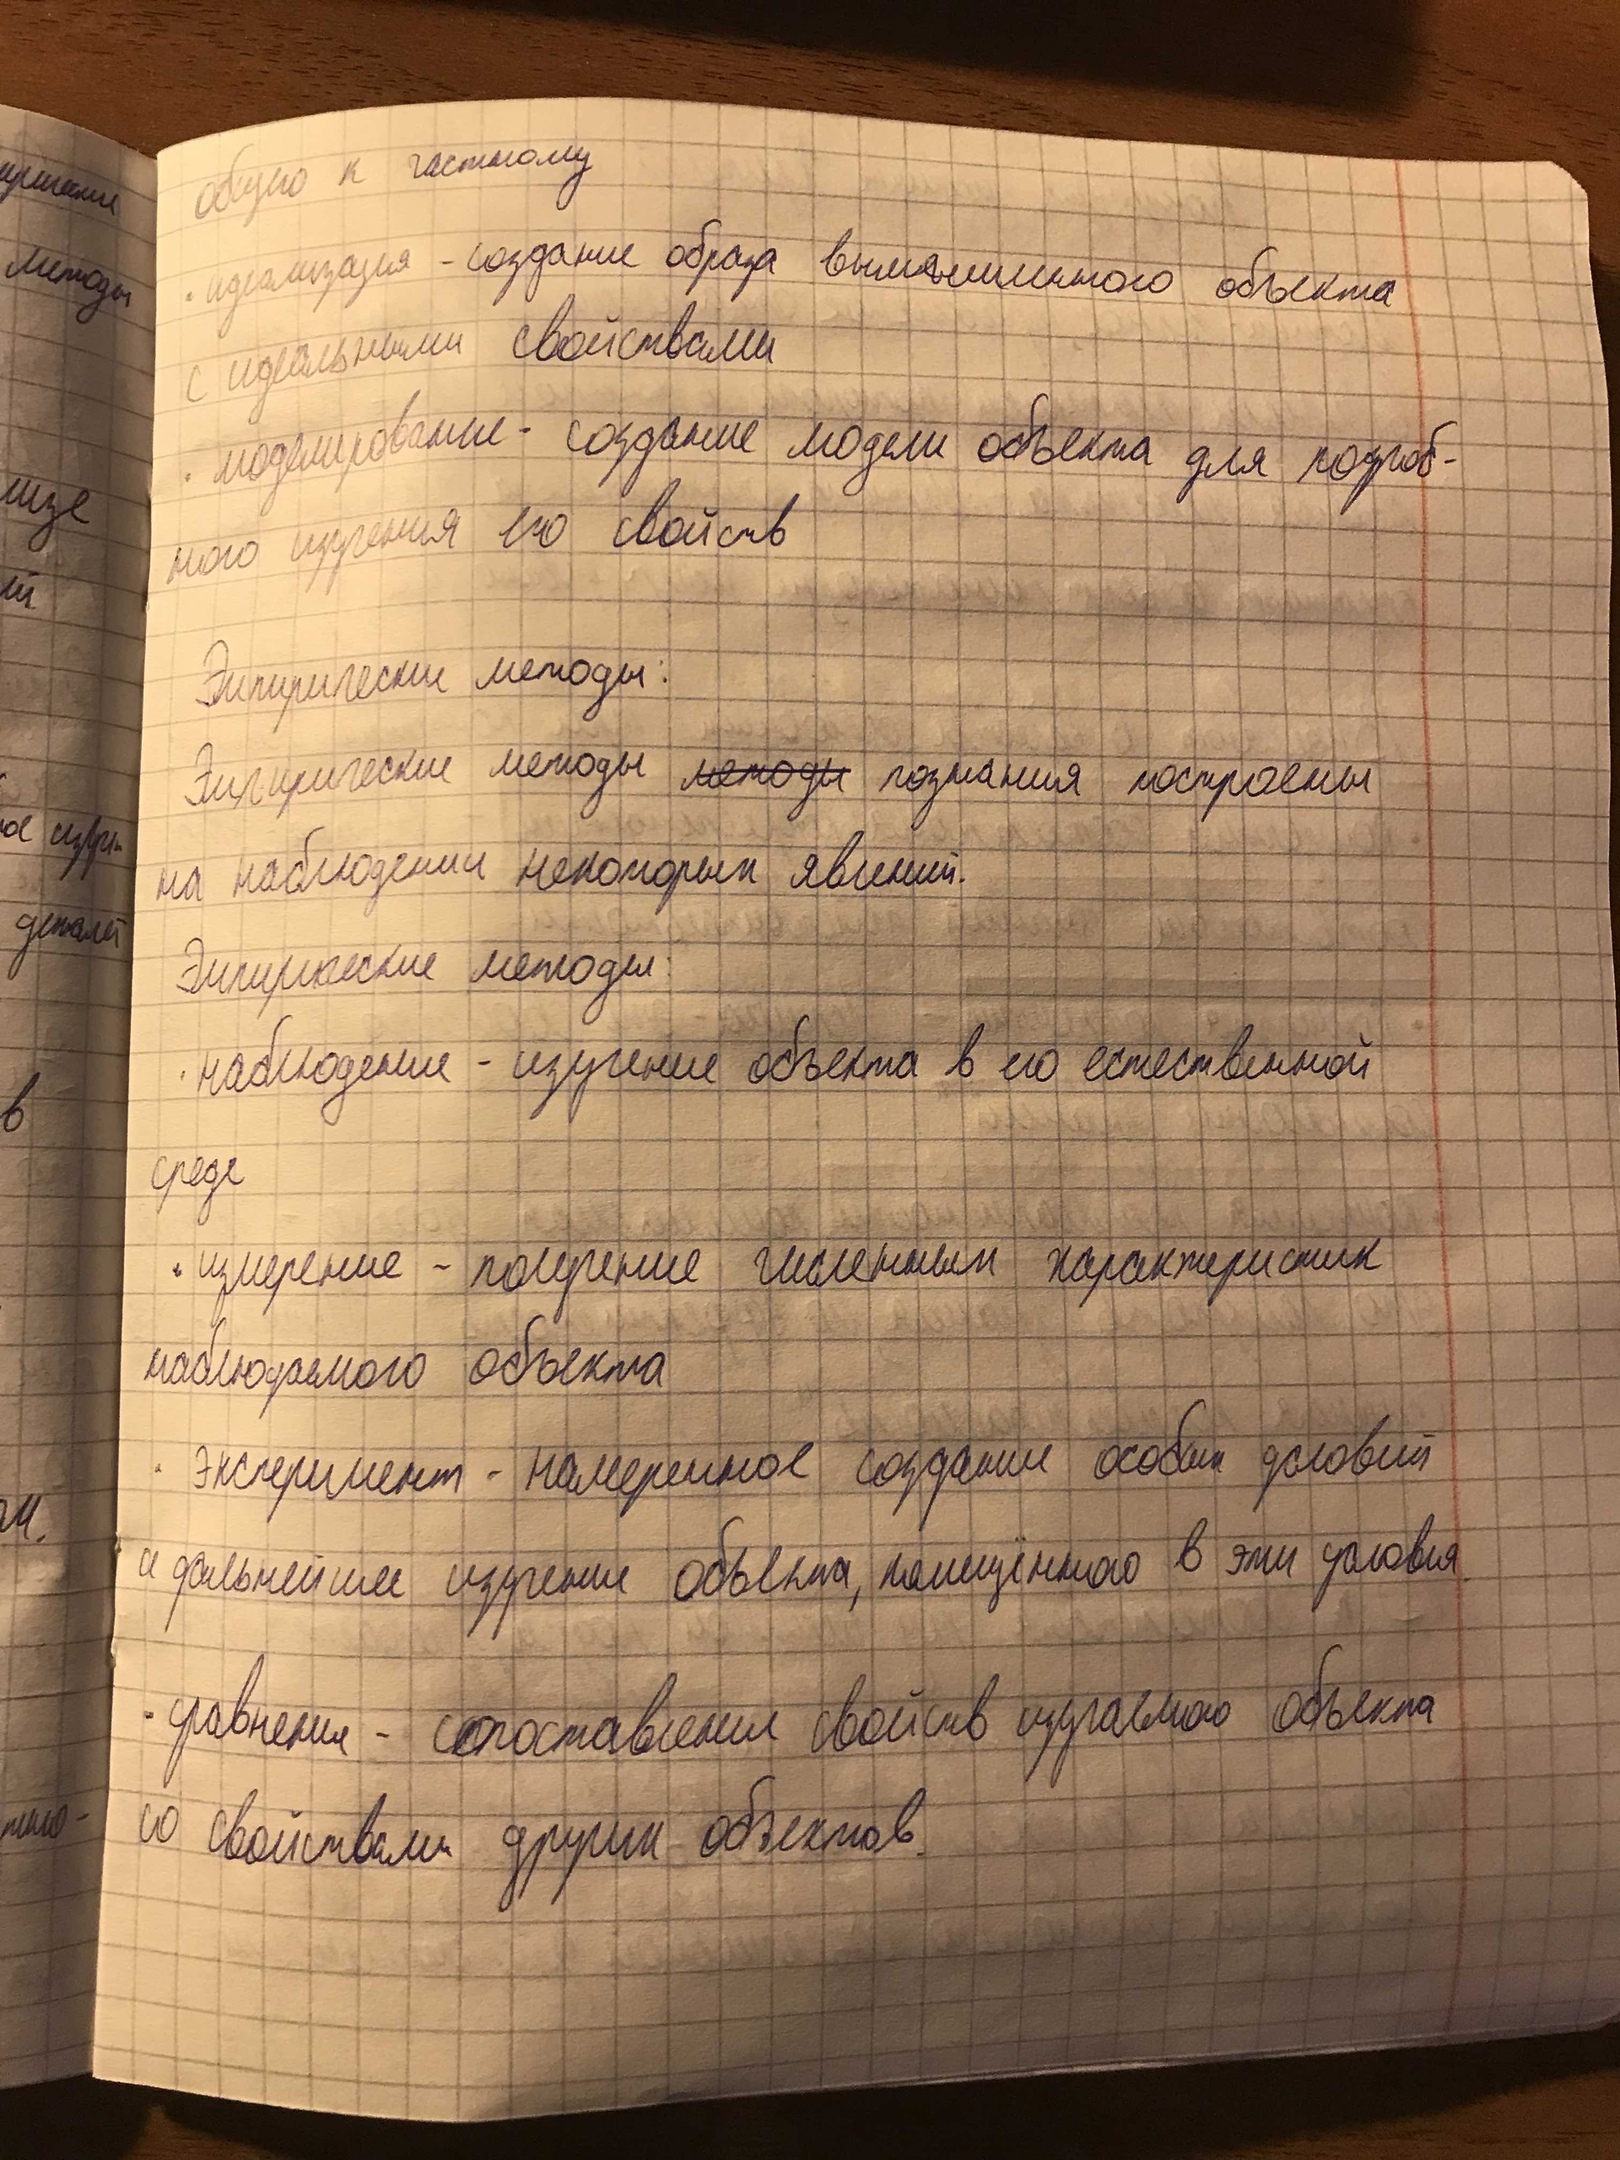 общего к частному
· идеализация - создание образа вымышленного объекта
с идеальными свойствами
· моделирование - создание модели объекта для подроб-
ного изучения его свойств
Эмпирические методы:
Эмпирические методы ~~методы~~ познания построены
на наблюдении некоторых явлений.
Эмпирические методы:
· наблюдение - изучение объекта в его естественной
среде
· измерение - получение численных характеристик
наблюдаемого объекта
· эксперимент - намеренное создание особых условий
и дальнейшее изучение объекта, помещённого в эти условия.
- сравнения - сопоставления свойств изучаемого объекта
со свойствами других объектов.
методы
деталей
в